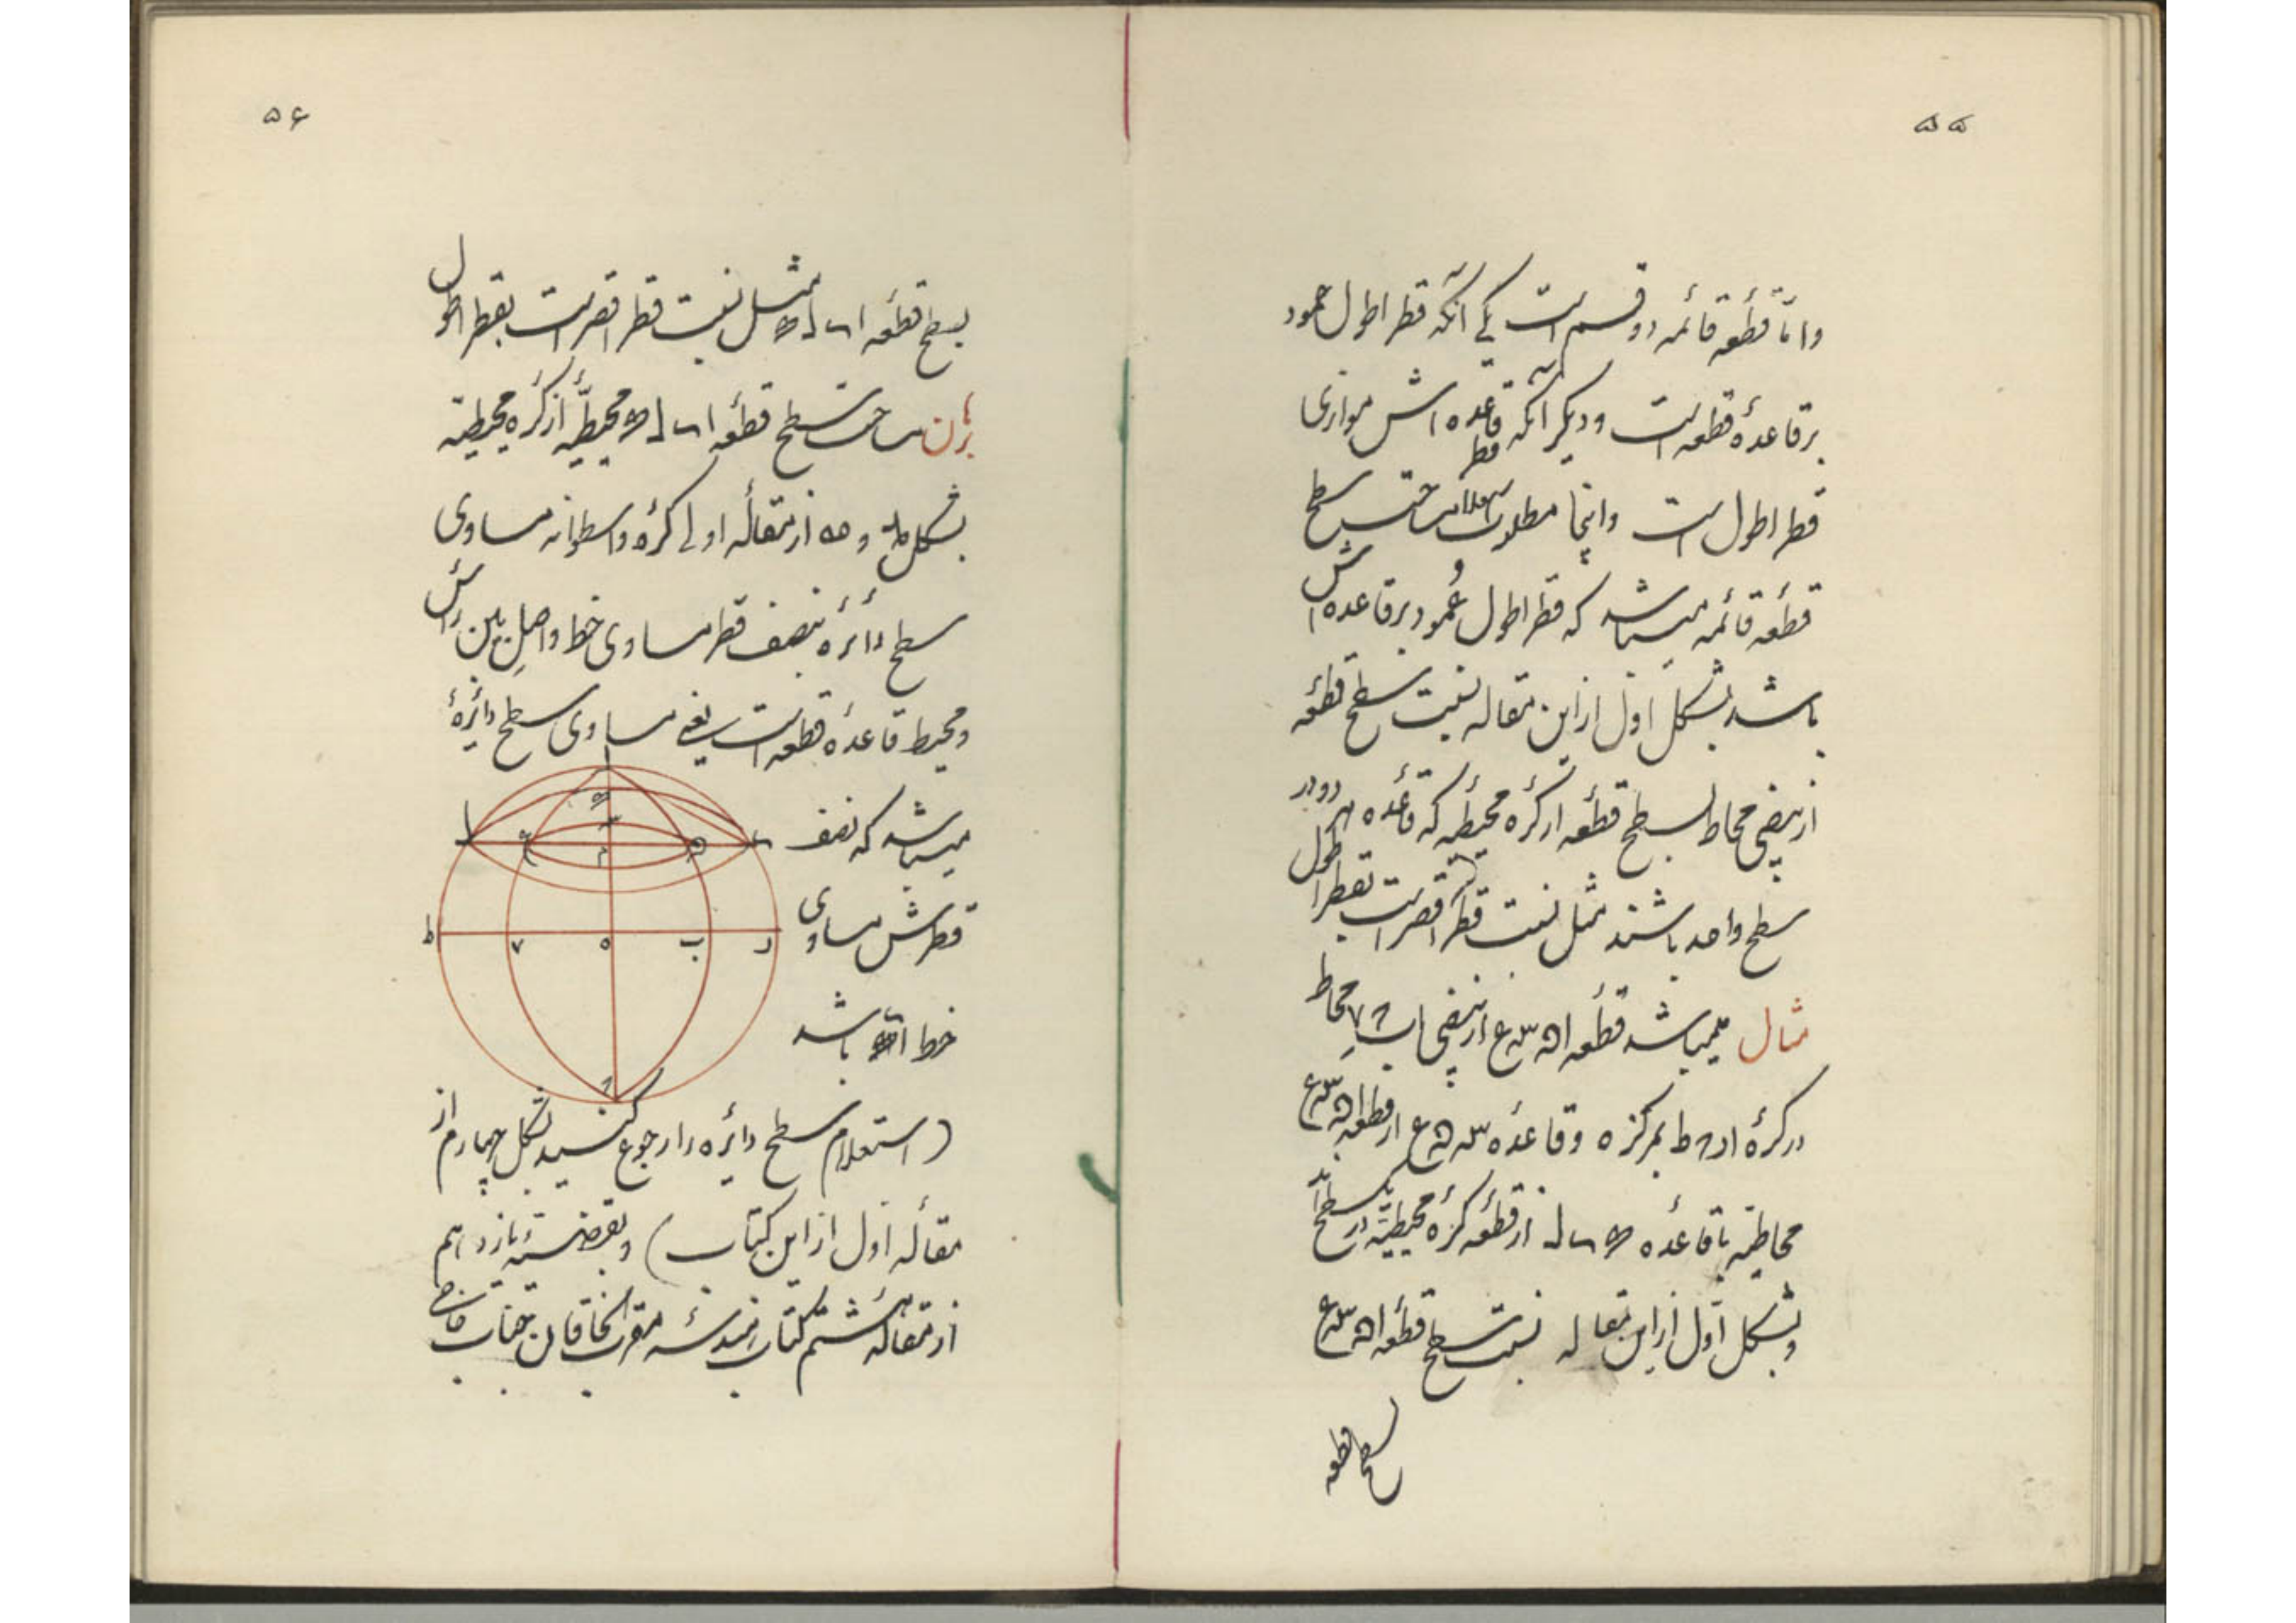 ۵۵
واما قطعه قائمه دو قسم است یکی آنکه قطر اطول عمود
بر قاعدهٔ قطعه است و دیگر آنکه قاعده اش موازی
قطر اطول است و اینجا مطلوب استعلام مساحت سطح
فقط
قطعه قائمه میباشد که قطر اطول عمود بر قاعده اش
باشد بشکل اول از این مقاله نسبت سطح قطعه
از بیضی محاط بسطح قطعه از کرهٔ محیطیه که قاعده هر دو در
سطح واحد باشند مثل نسبت قطر اقصر است بقطر اطول
مثال میباشد قطعه از بیضی محاط
در کرهٔ بمرکز ه و قاعدهٔ از قطعه
محاطیه با قاعده از قطعه کرهٔ محیطیه در یک سطح اند
و بشکل اول از این مقاله نسبت سطح قطعه
سطح قطعه
۵۶
بسطح قطعه مثل نسبت قطر اقصر است بقطر اطول
برهان مساحت سطح قطعه محیطیه از کره محیطیه
بشکل و از مقاله اولی کره و اسطوانه مساوی
سطح دائره بنصف قطر مساوی خط واصل بین رأس
و محیط قاعدهٔ قطعه است یعنی مساوی سطح دائرهٔ
میباشد که نصف
قطرش مساوی
خط باشد
ا
م
ط
ه
ب
د
(استعلام سطح دائره را رجوع کنید بشکل چهارم از
مقاله اول از این کتاب) و بقضیه یازدهم
از مقاله هشتم کتاب هندسه مقرب الخاقان جناب